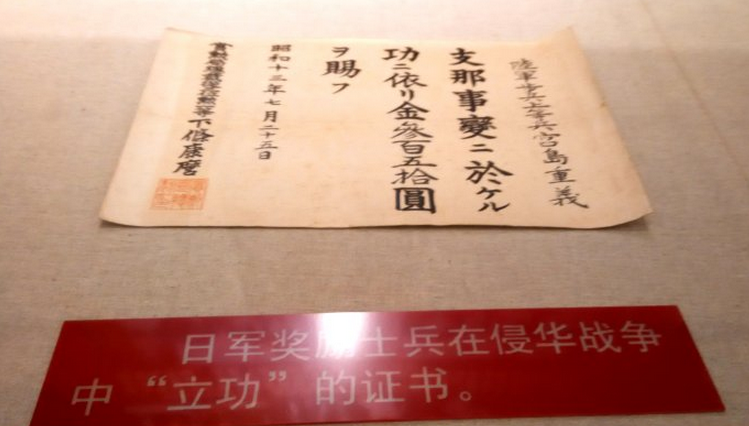 陸軍歩兵上等兵宮島重義
支那事變ニ於ケル
功ニ依リ金參百五拾圓
ヲ賜フ
昭和十三年七月二十五日
賞勲局総裁従四位勲二等下條康麿
日军奖励士兵在侵华战争
中“立功”的证书。